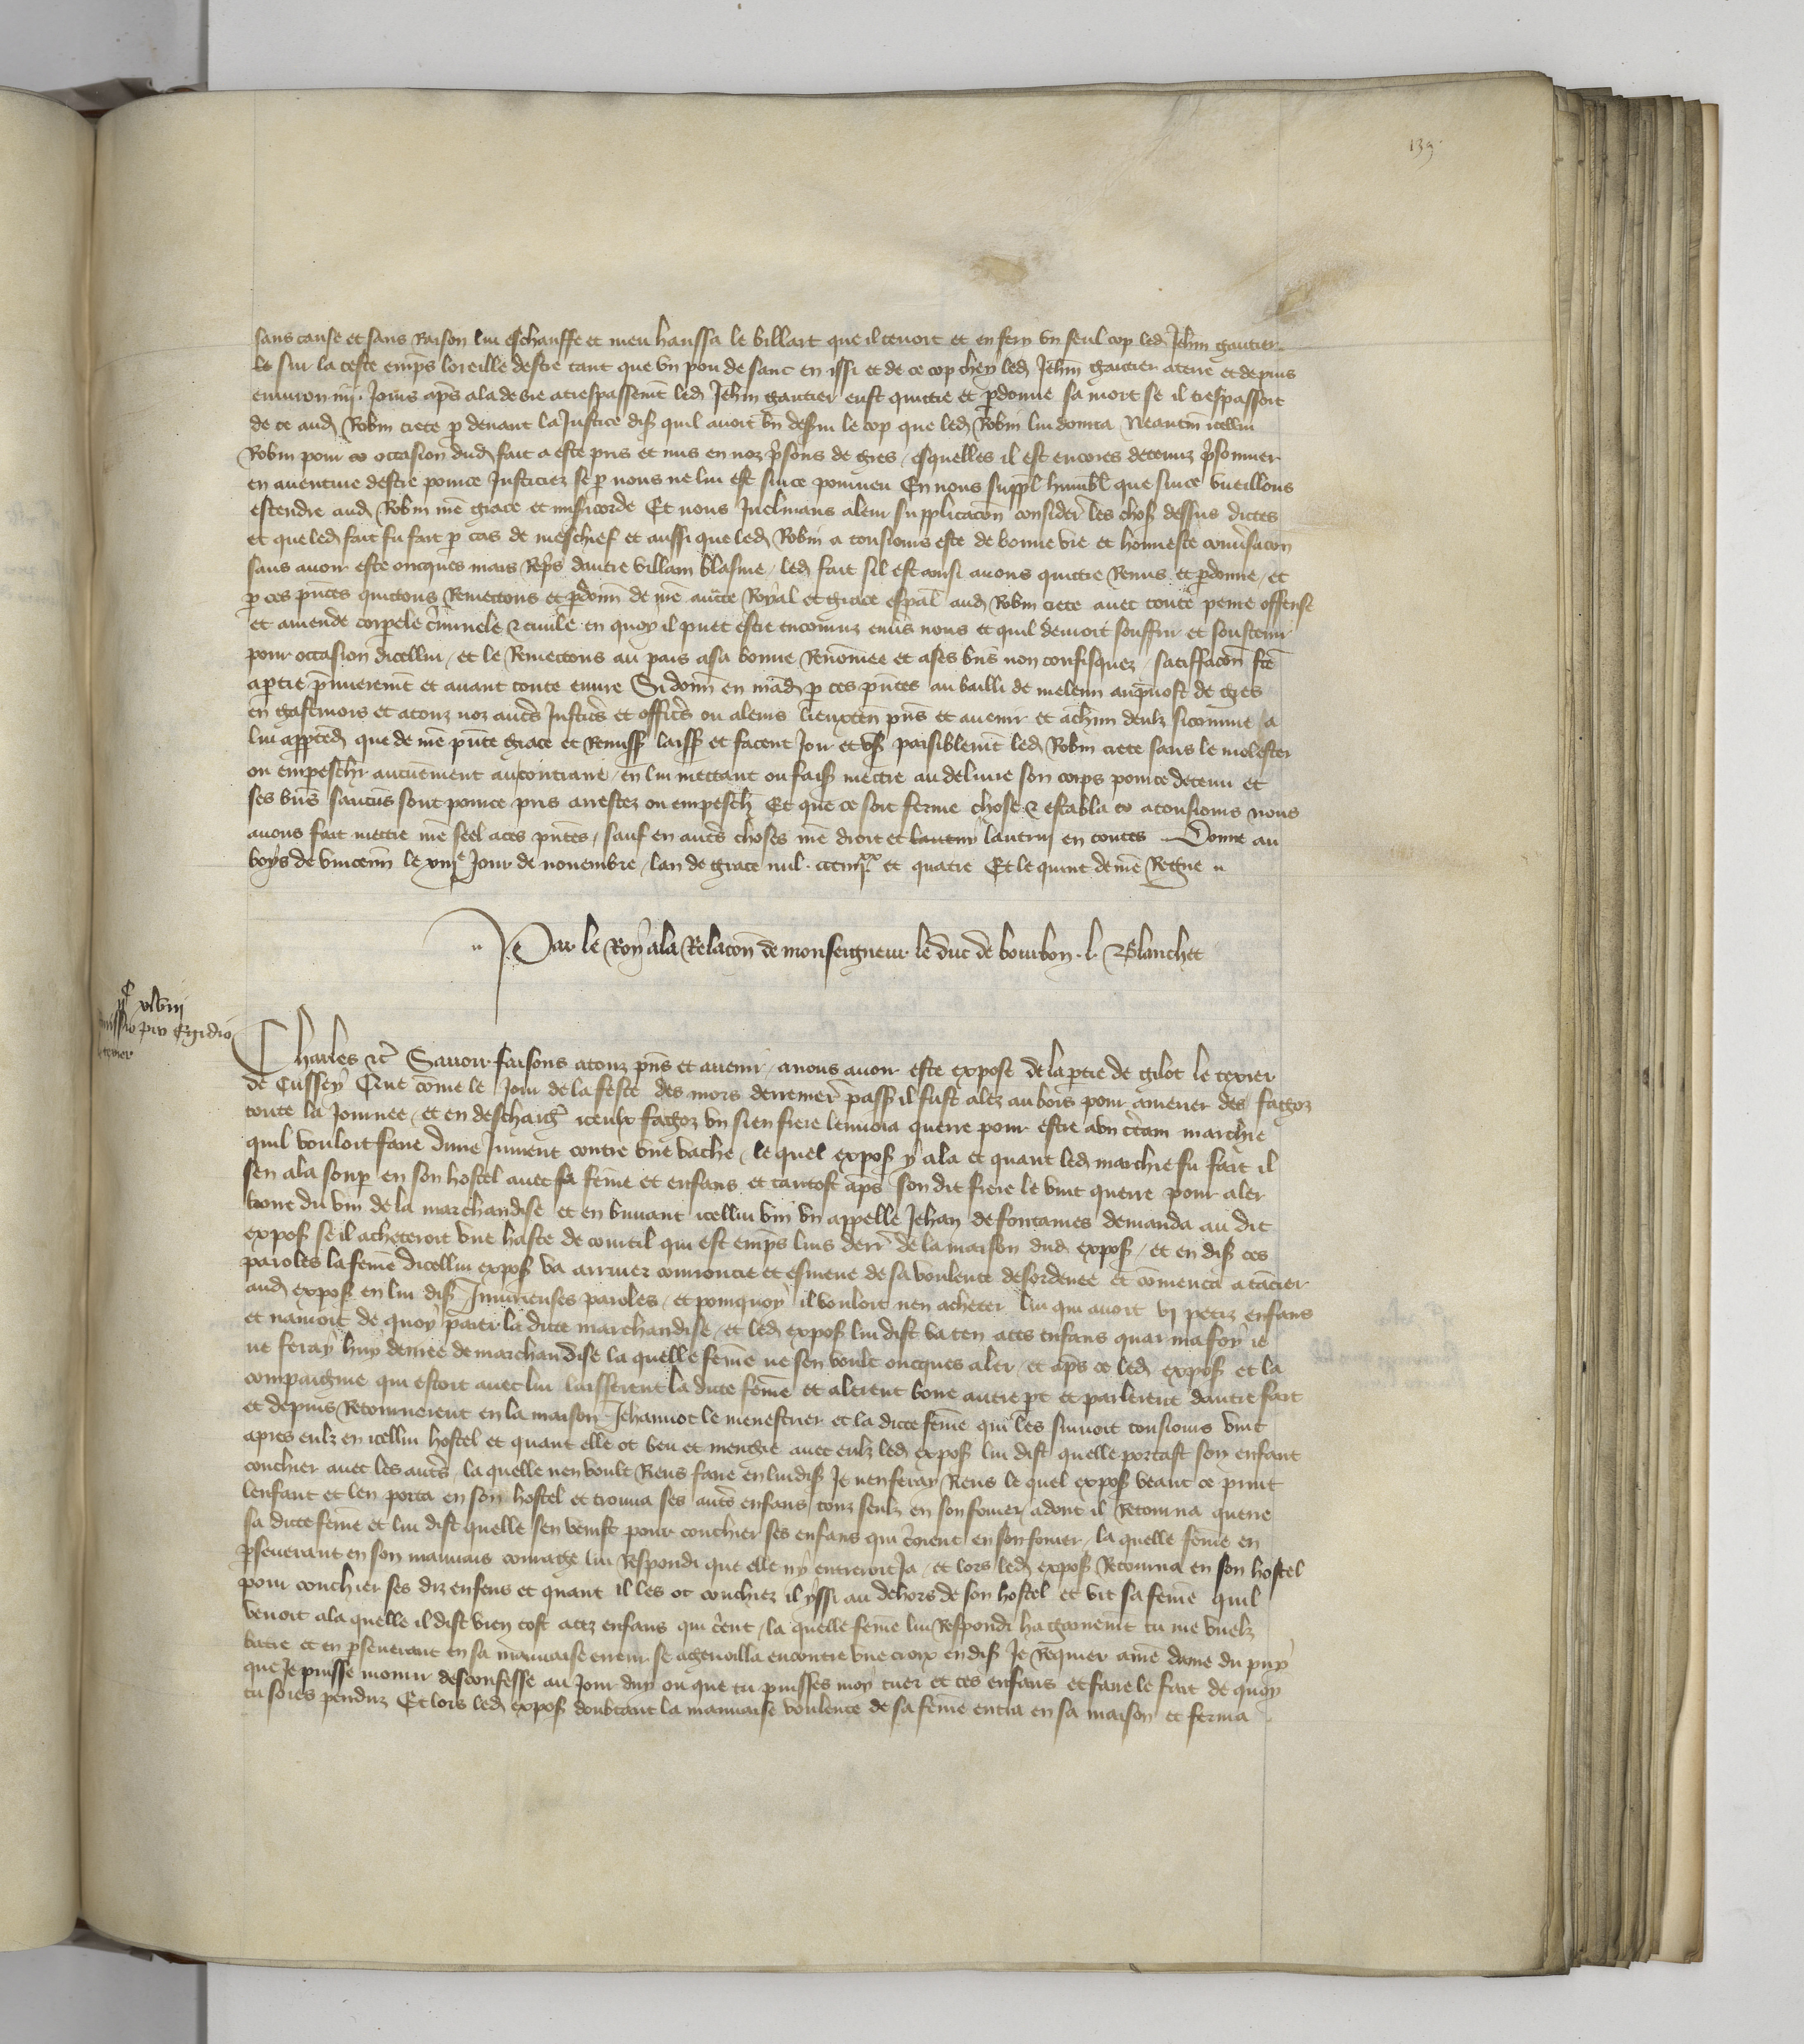 139.
sans cause et sans Raison lui eschauffe et meu haussa le billart que il tenoit et en feri un seul cop led Jehn gautier
sur la teste empͤs loreille destre tant que un pou de sanc en issi et de ce cop chey led Jehn gautier a terre et depuis
environ iiij. Jours apͤs ala de vie a trespassemͭt led Jehn gautier eust quittie et pdonne sa mort se il trespassoit
de ce aud Robin crete p devant la Justice diſ quil avoit bn desſui le cop que led Robin lui donna Neantm̄ icellui
Robin pour occasion dud fait a este pris et mis en noz pͥsons de gres / esquelles il est encores detenuz pͥsonnier
en aventure destre pource Justiciez se p nous ne lui est surce pourveu En nous suppl humbl que surce vueillons
estendre aud Robin nr̄e grace et misͥcorde Et nous Inclinans a leur supplicacōn consider les choſ dessus dictes
et que led fait fu fait p cas de meschief et aussi que led Robin a tousiours este de bonne vie et honneste convͥsacōn
sans avoir este oncques mais Repͥs dautre villain blasme / led fait sil est ainsi avons quittie Remis et pdonne / et
p ces pn̄tes quittons Remettons et pdonn̄ de nr̄e auc̄te Royal et grace esp̄al aud Robin crete avec toute peine offense
et amende corpele cͥminele & civile en quoy il puet estre encouruz envͥs nous et quil devroit souffrir et soustenir
pour occasion dicellui / et le Remettons au pais a sa bonne Renōmee et a ses bn̄s non confisquez / satiffacōn fc̄e
a ptie pͥmieremͭt et avant toute euvre Si donn̄ en mād p ces pn̄tes au bailli de meleun au pͥvost de gres
en gastinois et a touz noz autͤs Justicͤs et officͤs ou a leurs lieuxten̄ pn̄s et avenir et a chūn deulz si comme a
lui appted que de nr̄e pn̄te grace et Remisſ laisſ et facent Joir et uſ paisiblemͭt led Robin crete sans le molester
ou empeschr aucunement au contraire / en lui mettant ou faiſ mettre au delivre son corps pource detenu et
ses bn̄s saucūs sont pource pris arrestez ou empesch Et que ce soit ferme chose & estable a tousiours nous
avons fait mettre nr̄e seel a ces pn̄tes / sauf en autͤs choses nr̄e droit et lautruy en toutes Donne au
boys de vincenn̄ le xviijͤ Jour de novembre / lan de grace mil . ccciiijˣˣ et quatre Et le quint de nr̄e Regne
Par le Roy a la Relacōn de monseigneur le duc de bourbon . L. Blanchet
C xlviij
Remissio pro Egidio
texier
Charles &c̄ Savoir faisons a touz pn̄s et avenir / a nous avoir este expose de la ptie de gilot le texier
de Cussey Que cōme le Jour de la feste des mors derrenierͭ passͤ il fust alez au bois pour amener des fagoz
toute la Journee / et en deschargͭ iceulx fagoz un sien frere lenvoia querre pour estre a un c̄tain marchie
quil vouloit faire dune Jument contre une vache / le quel expoſ y ala et quant led marchie fu fait il
sen ala soupͤ en son hostel avec sa fēme et enfans et tantost apͤs son dit frere le vint querre pour aler
boire du vin de la marchandise et en buvant icellui vin un appelle Jehan de fontaines demanda au dit
expoſ se il acheteroit une haste de courtil qui est empͤs luis derr̄ de la maison dud expoſ / et en diſ ces
paroles la femē dicellui expoſ va arriver courroucie et esmeue de sa voulente desordenee et cōmenca a tācier
aud expoſ en lui diſ Iniurieuses paroles / et pourquoy il vouloit rien acheter lui qui avoit vj petiz enfans
et navoit de quoy paier la dicte marchandise / et led expoſ lui dist va ten a tes enfans quar ma foy ie
ne feray huy denree de marchandise la quelle femē ne sen voult oncques aler / et apͤs ce led expoſ et la
compaignie qui estoit avec lui laisserent la dicte femē et alerent boire autre pt et parlerent dautre fait
et depuis Retournerent en la maison Jehannot le menestrier et la dicte femē qui les suivoit tousiours vint
apres eulz en icellui hostel et quant elle ot beu et mengie avec eulz led expoſ lui dist quelle portast son enfant
couchier avec les autͤs / la quelle nen voult Riens faire en lui diſ Je nen feray Riens le quel expoſ veant ce print
lenfant et len porta en son hostel et trouva ses autͤs enfans touz seulz en son fouier / adont il Retourna querre
sa dicte femē et lui dist quelle sen venist pour couchier ses enfans qui cͥoient en son fouier / la quelle femē en
pseverant en son mauvais courage lui Respondi que elle ny entreroit Ja / et lors led expoſ Retourna en son hostel
pour couchier ses diz enfens et quant il les ot couchiez il yssi au dehors de son hostel et vit sa femē quil
venoit a la quelle il dist vien tost a tez enfans qui cͥent / la quelle femē lui Respondi ha garnemͭt tu me vuelz
batre et en pseverant en sa mauvaise erreur se agenoilla encontre une croix en diſ Je Requier a nr̄e dame du puy
que Je puisse mourir desconfesse au Jour duy ou que tu puisses moy tuer et tes enfans et faire le fait de quoy
tu soies penduz Et lors led expoſ doubtant la mauvaise voulente de sa femē entra en sa maison et ferma